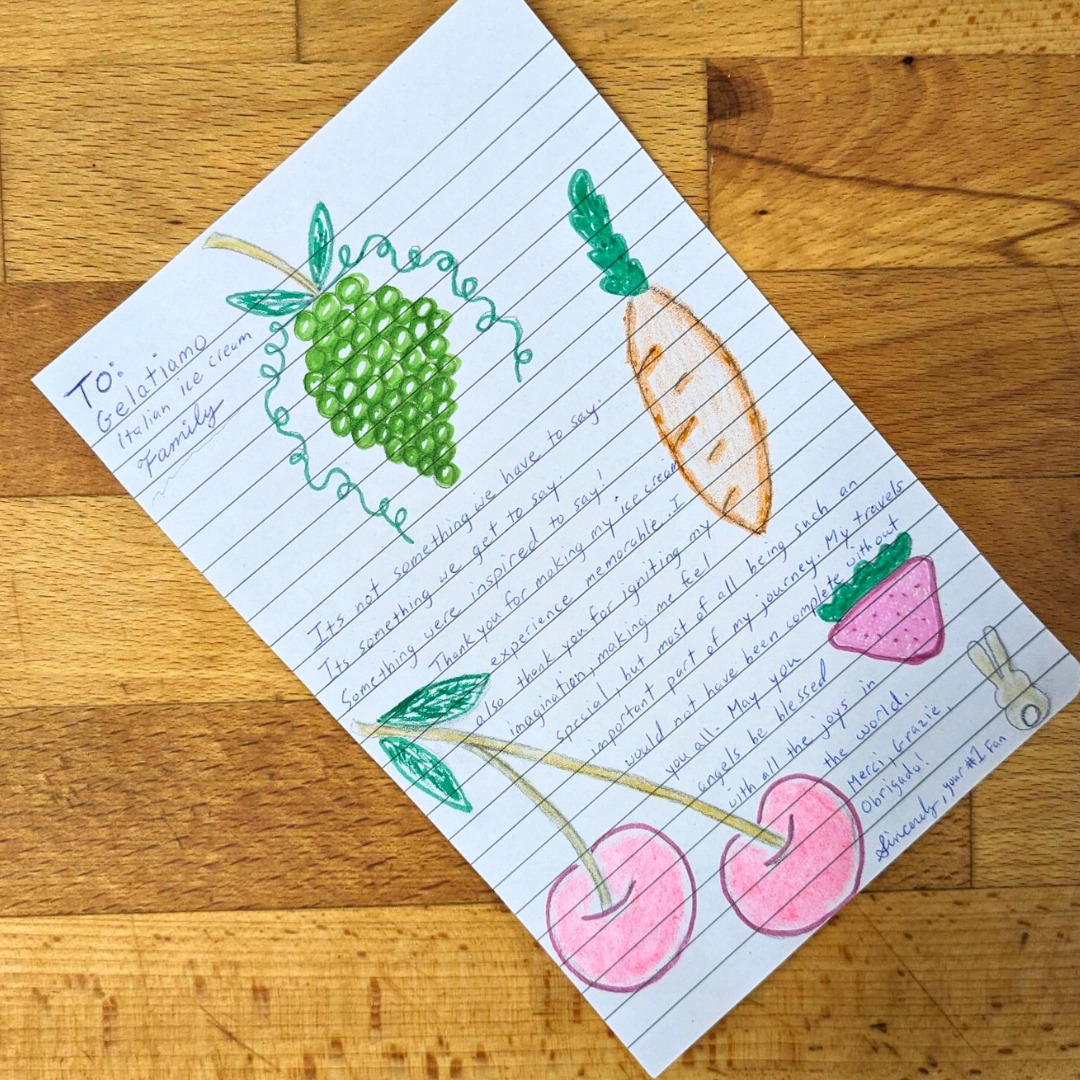 TO:
Gelatiamo
Italian ice cream
Family
Its not something we have to say.
Its something we get to say.
Something were inspired to say!
Thank you for making my ice cream
experience memorable. I
also thank you for igniting my
imagination, making me feel
special, but most of all being such an
important part of my journey. My travels
would not have been complete without
you all. May you
angels be blessed
with all the joys in
the world.
Merci, Grazie,
Obrigado!
Sincerely, your #1 Fan